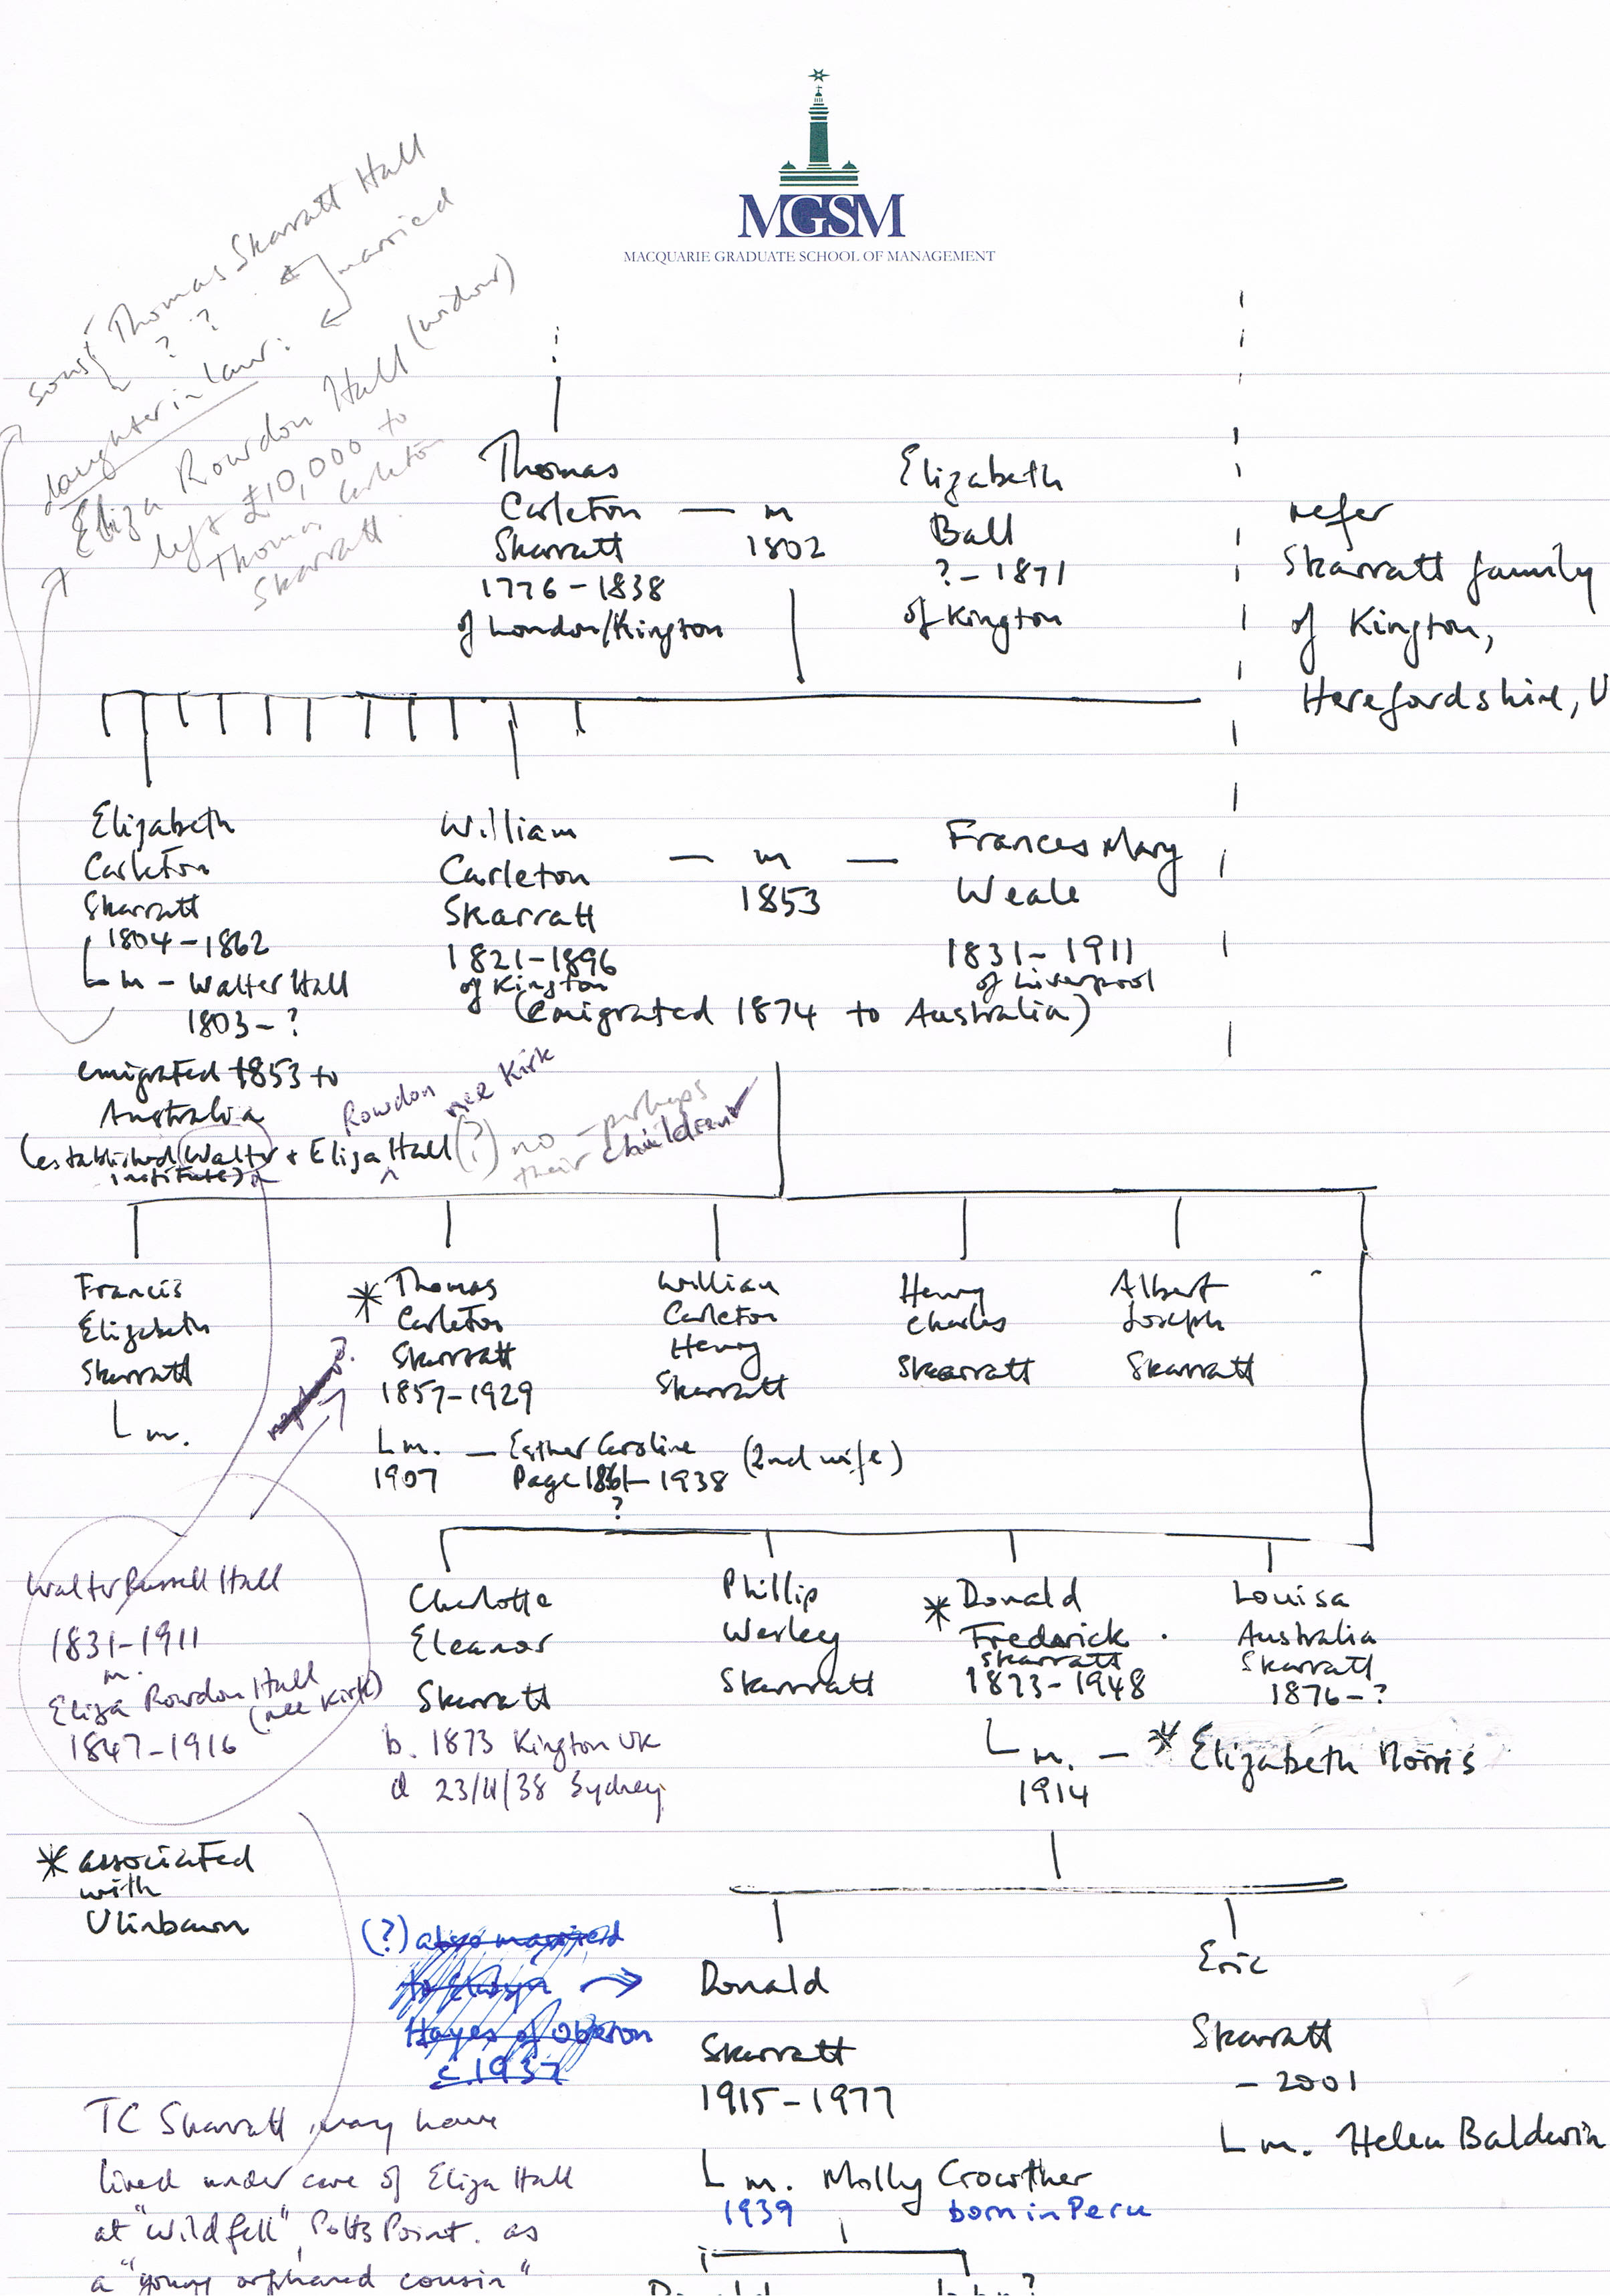 MGSM
MACQUARIE GRADUATE SCHOOL OF MANAGEMENT
sons { Thomas Skarratt Hall
? ? married
daughter in law:
Eliza Rowdon Hall (widow)
left £10,000 to
Thomas Carleton
Skarratt.
Thomas
Carleton — m
Skarratt 1802
1776 - 1838
of London/Kington
Elizabeth
Ball
? - 1871
of Kington
refer
Skarratt family
of Kington,
Herefordshire, U
Elizabeth
Carleton
Skarratt
1804 - 1862
m - Walter Hall
1803 - ?
emigrated 1853 to
Australia
(established Walter + Eliza Hall (?) no - perhaps
institute)
Rowdon nee Kirk
their children
William
Carleton
Skarratt
1821 - 1896
of Kington
— m —
1853
Frances Mary
Weale
1831 - 1911
of Liverpool
(emigrated 1874 to Australia)
Francis
Elizabeth
Skarratt
m.
* Thomas
Carleton
Skarratt
1857 - 1929
m. — Esther Caroline (2nd wife)
1907 Page 1861 - 1938
?
William
Carleton
Henry
Skarratt
Henry
Charles
Skarratt
Albert
Joseph
Skarratt
Walter Russell Hall
1831 - 1911
m.
Eliza Rowdon Hall
(nee Kirk)
1847 - 1916
Charlotte
Eleanor
Skarratt
b. 1873 Kington UK
d 23/11/38 Sydney
Phillip
Wesley
Skarratt
* Donald
Frederick
Skarratt
1873 - 1948
m. — * Elizabeth Norris
1914
Louisa
Australia
Skarratt
1876 - ?
* associated
with
Ulinbawn
(?) also married
to
Hayes of Oberon
c. 1937
Donald
Skarratt
1915 - 1977
m. Molly Crowther
1939 born in Peru
Eric
Skarratt
- 2001
m. Helen Baldwin
TC Skarratt may have
lived under care of Eliza Hall
at "Wildfell", Potts Point. as
a "young orphaned cousin"
Donald
John?